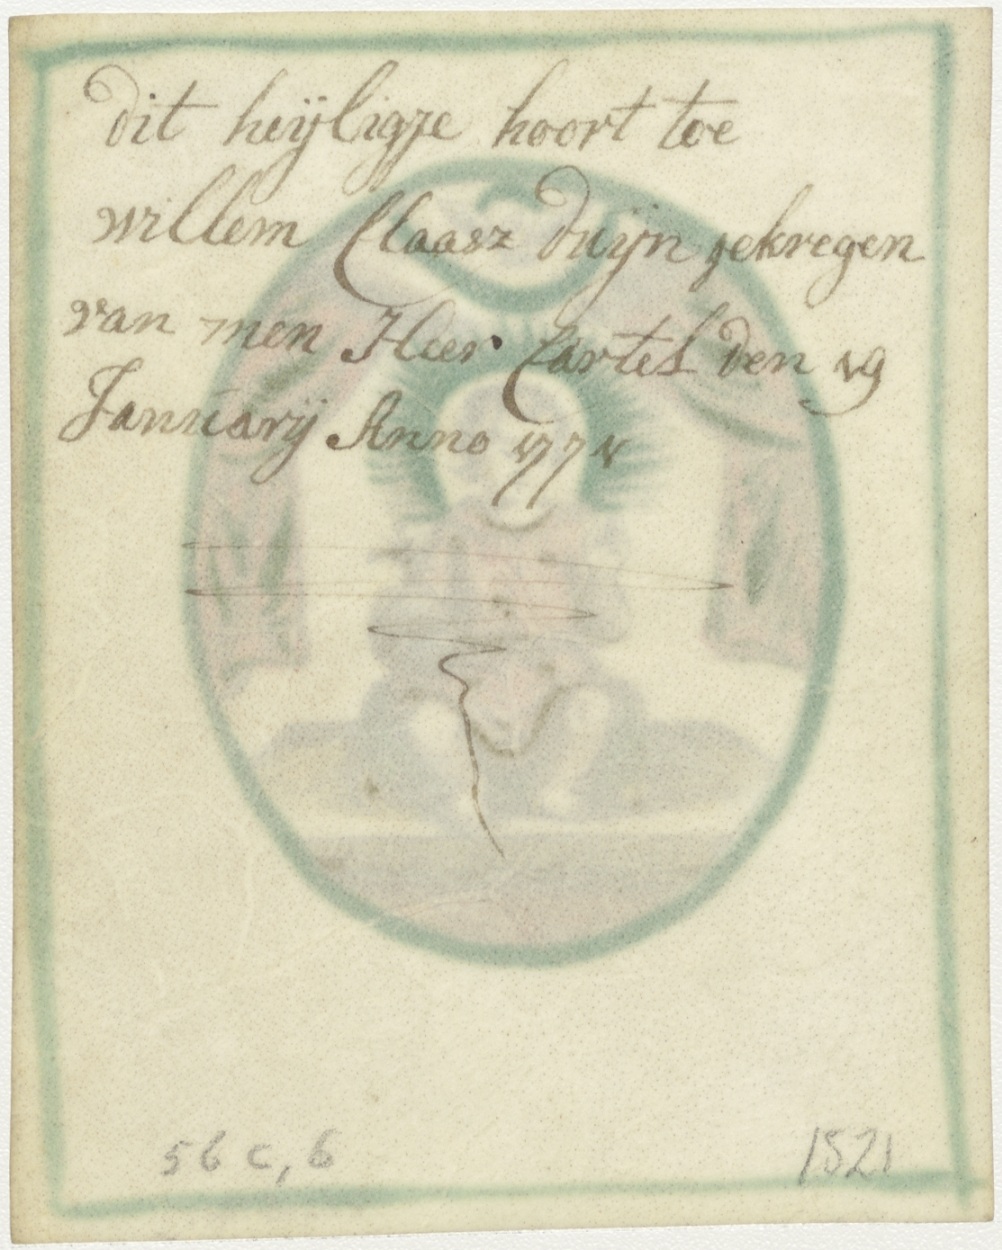 dit heijligje hoort toe
willem Claasz duijn gekregen
van men Heer Cartel den 19
Januarij Anno 1771
56 c, 6
1521